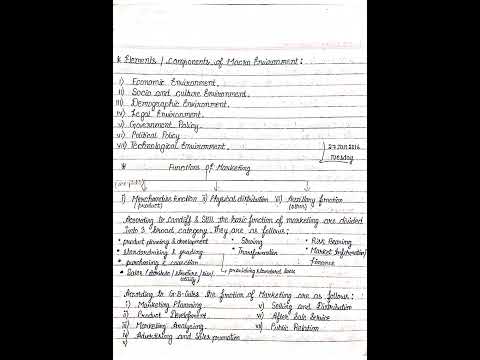 * Elements / Components of Macro Environment:
i) Economic Environment.
ii) Socio and culture Environment.
iii) Demographic Environment.
iv) Legal Environment.
v) Government Policy.
vi) Political Policy
vii) Technological Environment.
27 Jan 2016
Tuesday
* Functions of Marketing
i) Merchandise function ii) Physical distribution iii) Auxiliary function
(product) (others)
According to Cundiff & Still the basic function of marketing are divided
into 3 broad category. They are as follows:
• product planning & development • Storing • Risk Bearing
• standardising & grading • Transformation • Market Information
• purchasing & collection Finance
• Sales → providing standard
According to G.B. Giles the function of Marketing are as follows:
i) Marketing Planning v) Selling and Distribution
ii) Product Development vi) After Sale Service
iii) Marketing Analysing vii) Public Relation
iv) Advertising and sales promotion
v)